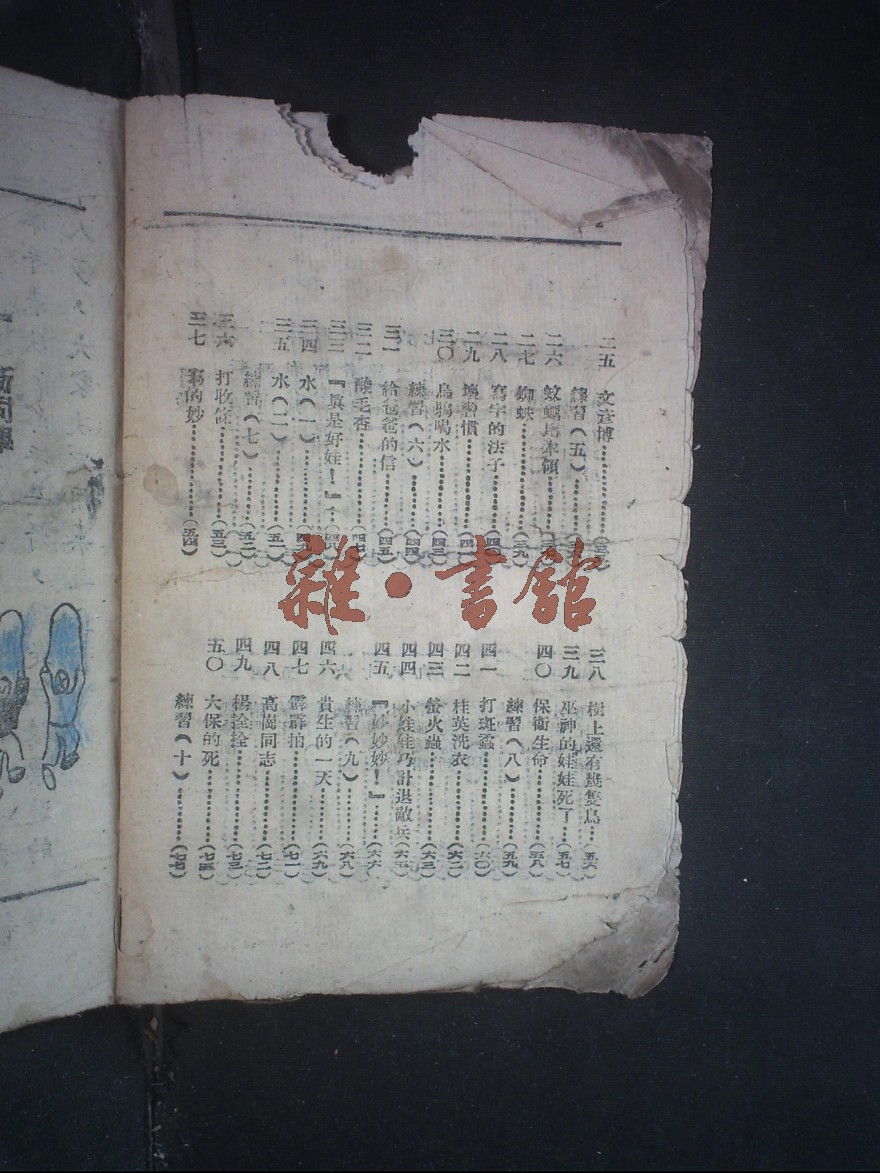 二五 文彥博
練習(五)
二六 蚊蠅比本領
二七 蜘蛛(三九)
二八 寫字的法子(四〇)
二九 壞習慣
三〇 烏鴉喝水(四三)
練習(六)(四四)
三一 給爸爸的信(四五)
三二 酸毛杏(四七)
三三 『眞是好娃!』
三四 水(一)
三五 水(二)(五一)
練習(七)(五二)
三六 打收條(五三)
三七 寫的妙(五四)
三八 樹上還有幾隻鳥(五六)
三九 巫神的娃娃死了(五七)
四〇 保衛生命(五八)
練習(八)(五九)
四一 打斑蝥(六〇)
四二 桂英洗衣(六二)
四三 螢火蟲(六三)
四四 小娃娃巧計退敵兵(六五)
四五 『妙妙妙!』(六六)
練習(九)(六八)
四六 貴生的一天(六九)
四七 霹霹拍(七一)
四八 高崗同志(七二)
四九 楊淦淦(七三)
五〇 六保的死(七五)
練習(十)(七七)
雜·書館